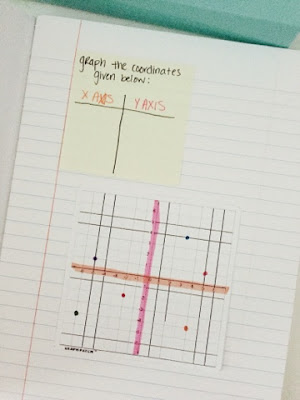 graph the coordinates
given below:
X AXIS Y AXIS